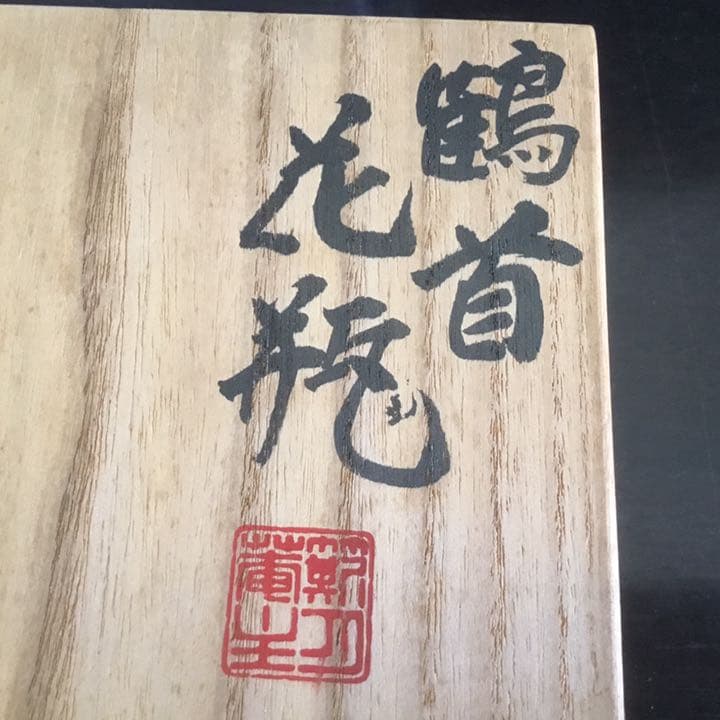 鶴首
花瓶